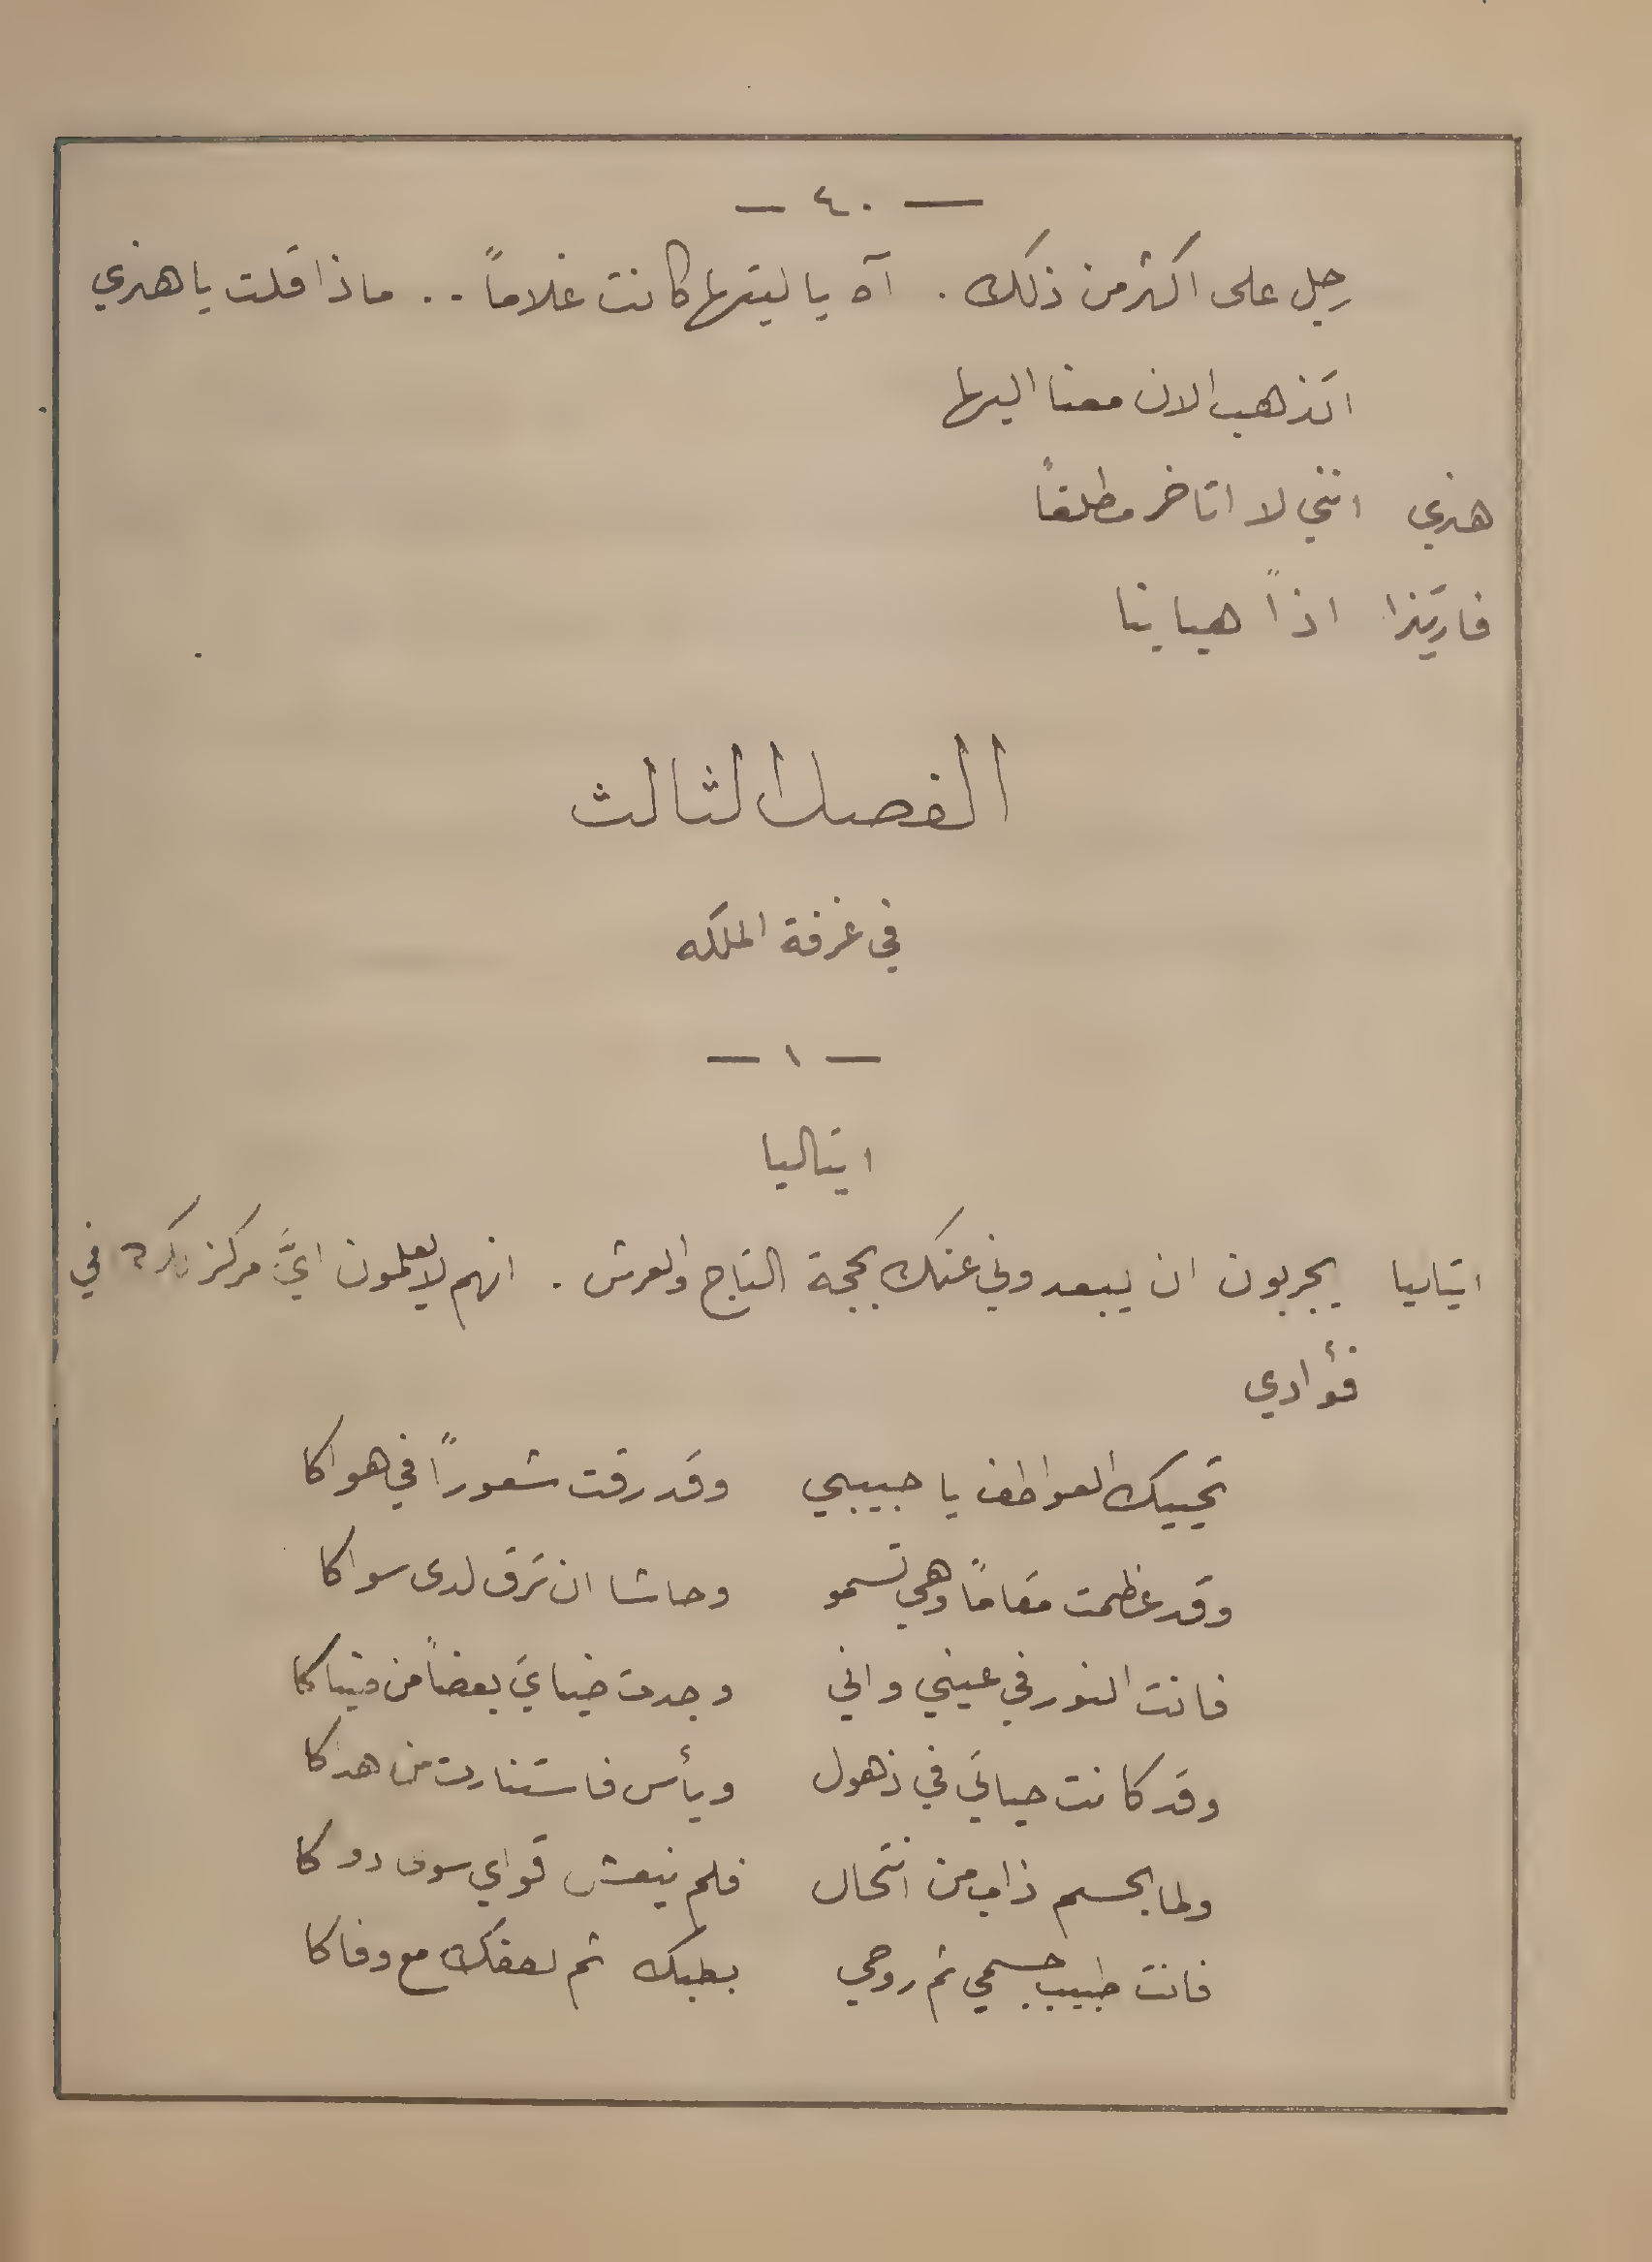 — ٤٠ —
رجل على اكثر من ذلك . آه يا ليتها كانت غلاماً .. ماذا قلت يا هنري
اتذهب الان معنا اليها
هنري انني لا اتاخر مطلقاً
فارتيزا اذاً هيا بنا
الفصل الثالث
في غرفة الملكه
— ١ —
ايتاليا
ايتاليا يجربون ان يبعدوني عنك بحجة التاج والعرش . انهم لا يعلمون ايَّ مركز لك في
فؤادي
تحييك العواطف يا حبيبي وقد رقت شعوراً في هواكا
وقد عظمت مقاماً وهي تسمو وحاشا ان ترق لدى سواكا
فانت النور في عيني واني وجدت ضيايَ بعضاً من ضياكا
وقد كانت حياتي في ذهول ويأس فاستنارت من هداكا
ولما الجسم ذاب من انتحال فلم ينعش قواي سوى دوكا
فانت طبيب جسمي ثم روحي بطبك ثم لطفك مع وفاكا